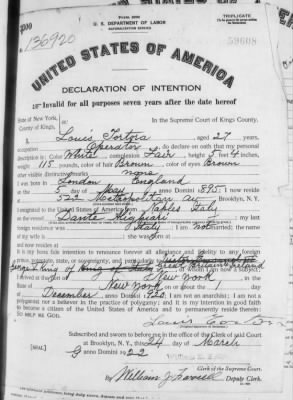 Form 2202
TRIPLICATE
U. S. DEPARTMENT OF LABOR
NATURALIZATION SERVICE
136920
59608
UNITED STATES OF AMERICA
DECLARATION OF INTENTION
Invalid for all purposes seven years after the date hereof
State of New York,
County of Kings,
In the Supreme Court of Kings County.
I, Louis Tortora aged 27 years,
occupation Operator, do declare on oath that my personal
description is: Color White, complexion Fair, height 5 feet 4 inches,
weight 115 pounds, color of hair Brown, color of eyes Brown
other visible distinctive marks none
I was born in London England
on the day of May, anno Domini 1895; I now reside
at 522 Metropolitan Av Brooklyn, N.Y.
I emigrated to the United States of America from Naples Italy
on the vessel Dante Alighieri; my last
foreign residence was Italy; I am not married; the name
of my wife is; she was born at
and now resides at
It is my bona fide intention to renounce forever all allegiance and fidelity to any foreign
prince, potentate, state, or sovereignty, and particularly to
of whom I am now a subject;
I arrived at the port of New York, in the
State of New York, on or about the 1 day
of December, anno Domini 1920; I am not an anarchist; I am not a
polygamist nor a believer in the practice of polygamy; and it is my intention in good faith
to become a citizen of the United States of America and to permanently reside therein:
SO HELP ME GOD.
Subscribed and sworn to before me in the office of the Clerk of said Court
at Brooklyn, N.Y., this 24 day of March
anno Domini 1922
[SEAL]
Clerk of the Supreme Court.
By William J. Deputy Clerk.